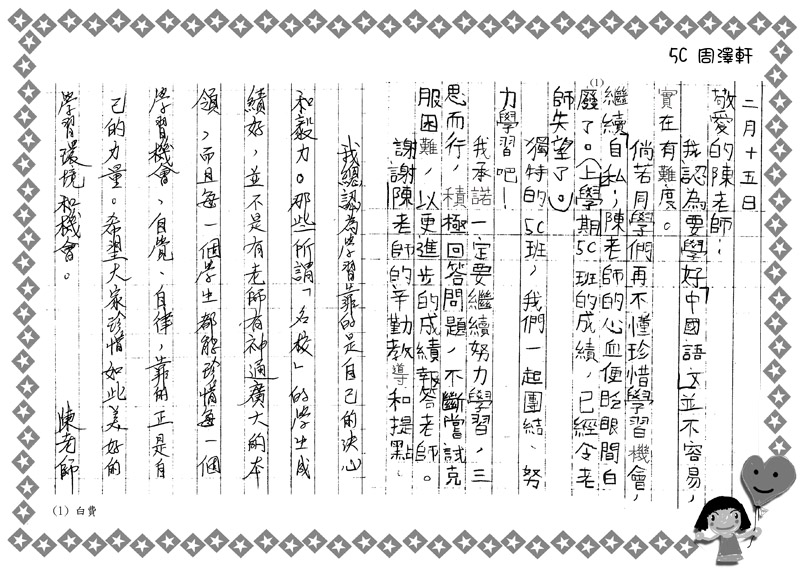 5C 周澤軒
二月十五日
敬愛的陳老師：
我認為要學好「中國語文」並不容易，
實在有難度。
倘若同學們再不懂珍惜學習機會，
繼續「自私」，陳老師的心血便眨眼間白
(1)
廢了。（上學期5C班的成績，已經令老
師失望了。）
獨特的5C班，我們一起團結、努
力學習吧！
我承諾一定要繼續努力學習，三
思而行，積極回答問題，不斷嘗試克
服困難，以更進步的成績報答老師。
謝謝陳老師的辛勤教導和提點。
我總認為學習靠的是自己的決心
和毅力。那些所謂「名校」的學生成
績好，並不是有老師有神通廣大的本
領，而且每一個學生都能珍惜每一個
學習機會、自覺、自律，靠的正是自
己的力量。希望大家珍惜如此美好的
學習環境和機會。
陳老師
(1) 白費